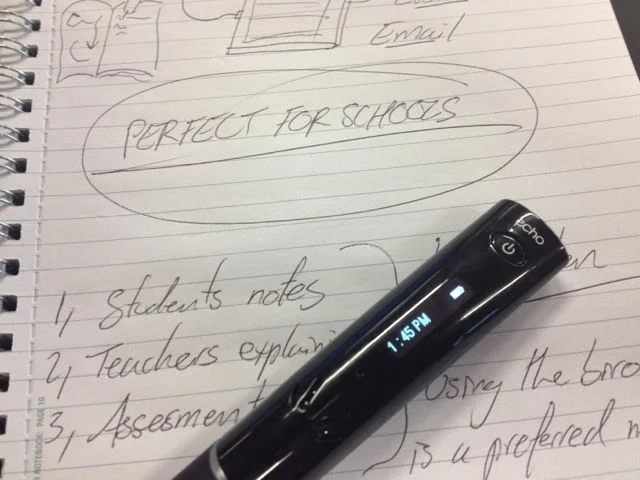 Email
PERFECT FOR SCHOOLS
echo
1:45 PM
1, Students notes
2, Teachers explaini
3, Assesment
Using the biro
is a preferred m
NOTEBOOK: PAGE 10